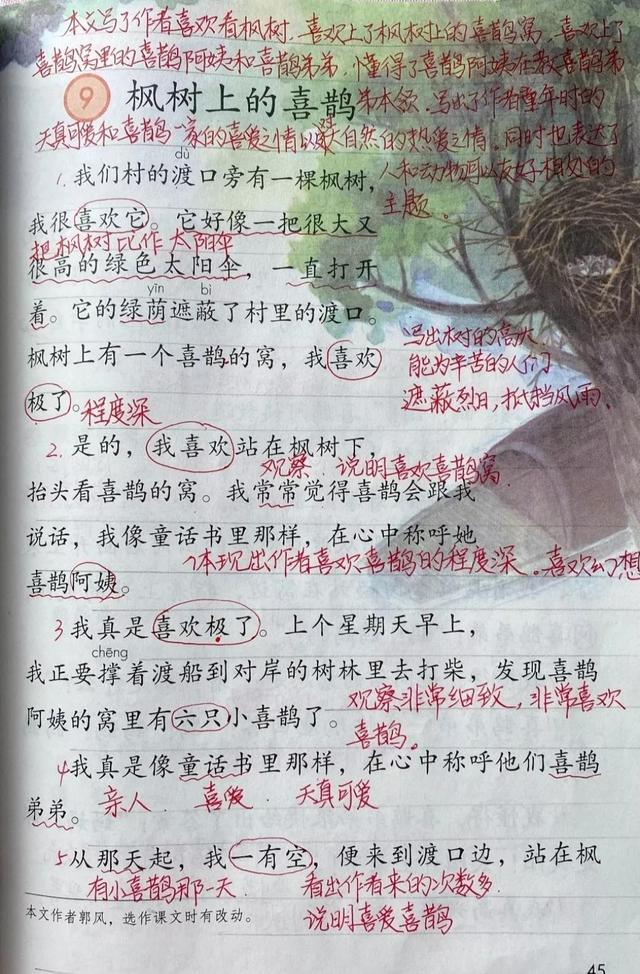 本文写了作者喜欢看枫树,喜欢上了枫树上的喜鹊窝,喜欢上了
喜鹊窝里的喜鹊阿姨和喜鹊弟弟,懂得了喜鹊阿姨在教喜鹊弟
9 枫树上的喜鹊
弟本领。写出了作者童年时的
天真可爱和喜鹊一家的喜爱之情以及对大自然的热爱之情。同时也表达了
dù
人和动物可以友好相处的
1. 我们村的渡口旁有一棵枫树,
主题。
我很喜欢它。它好像一把很大又
把枫树比作 太阳伞
很高的绿色太阳伞,一直打开
yīn bì
着。它的绿荫遮蔽了村里的渡口。
写出树的高大
枫树上有一个喜鹊的窝,我喜欢
能为辛苦的人们
极了。 程度深
遮蔽烈日,抵挡风雨。
2. 是的,我喜欢站在枫树下,
观察 说明喜欢喜鹊窝
抬头看喜鹊的窝。我常常觉得喜鹊会跟我
说话,我像童话书里那样,在心中称呼她
体现出作者喜欢喜鹊的程度深。喜欢幻想
喜鹊阿姨。
3 我真是喜欢极了。上个星期天早上,
chēng
我正要撑着渡船到对岸的树林里去打柴,发现喜鹊
观察非常细致,非常喜欢
阿姨的窝里有六只小喜鹊了。
喜鹊。
4 我真是像童话书里那样,在心中称呼他们喜鹊
弟弟。 亲人 喜爱 天真可爱
5 从那天起,我一有空,便来到渡口边,站在枫
有小喜鹊那一天 看出作者来的次数多
本文作者郭风,选作课文时有改动。
说明喜爱喜鹊
45